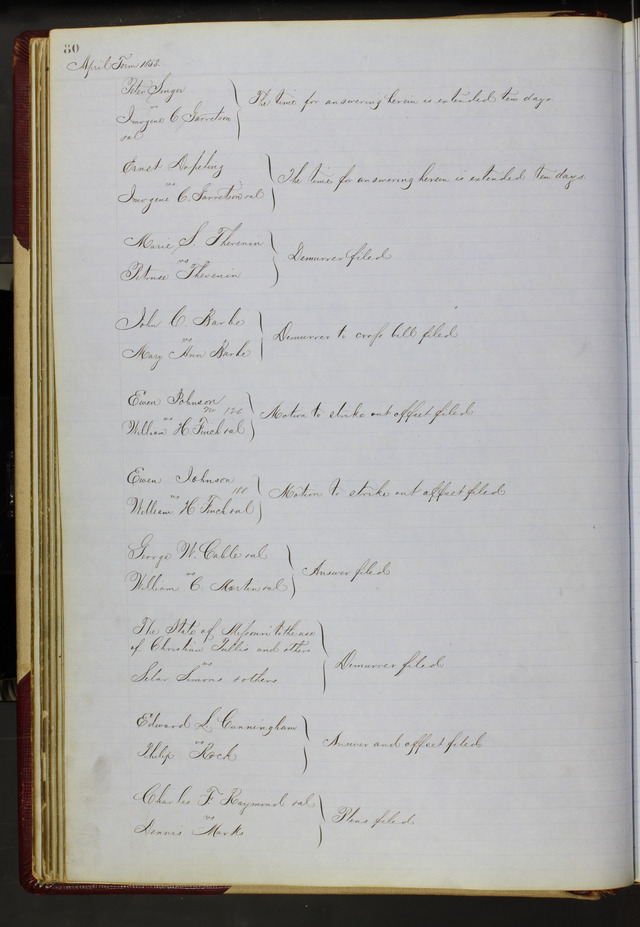 80
April Term
Peter Singer
vs
Imogene C. Garretson
et al
The time for answering herein is extended ten days
Ernst
vs
Imogene C. Garretson et al
The time for answering herein is extended ten days
Marie S. Thevenin
vs
Thevenin
Demurrer filed
John C. Barke
vs
Mary Ann Barke
Demurrer to cross bill filed
Ewen Johnson
No 126
vs
William H Finch et al
Motion to strike out offset filed
Ewen Johnson
vs
William H Finch et al
Motion to strike out offset filed
George W. Cable et al
vs
William C. Marten et al
Answer filed
The State of Missouri to the use
of Christian and others
vs
Simons & others
Demurrer filed
Edward L. Cunningham
vs
Philip Rock
Answer and offset filed
Charles F. Raymond et al
vs
Dennis Marks
Pleas filed